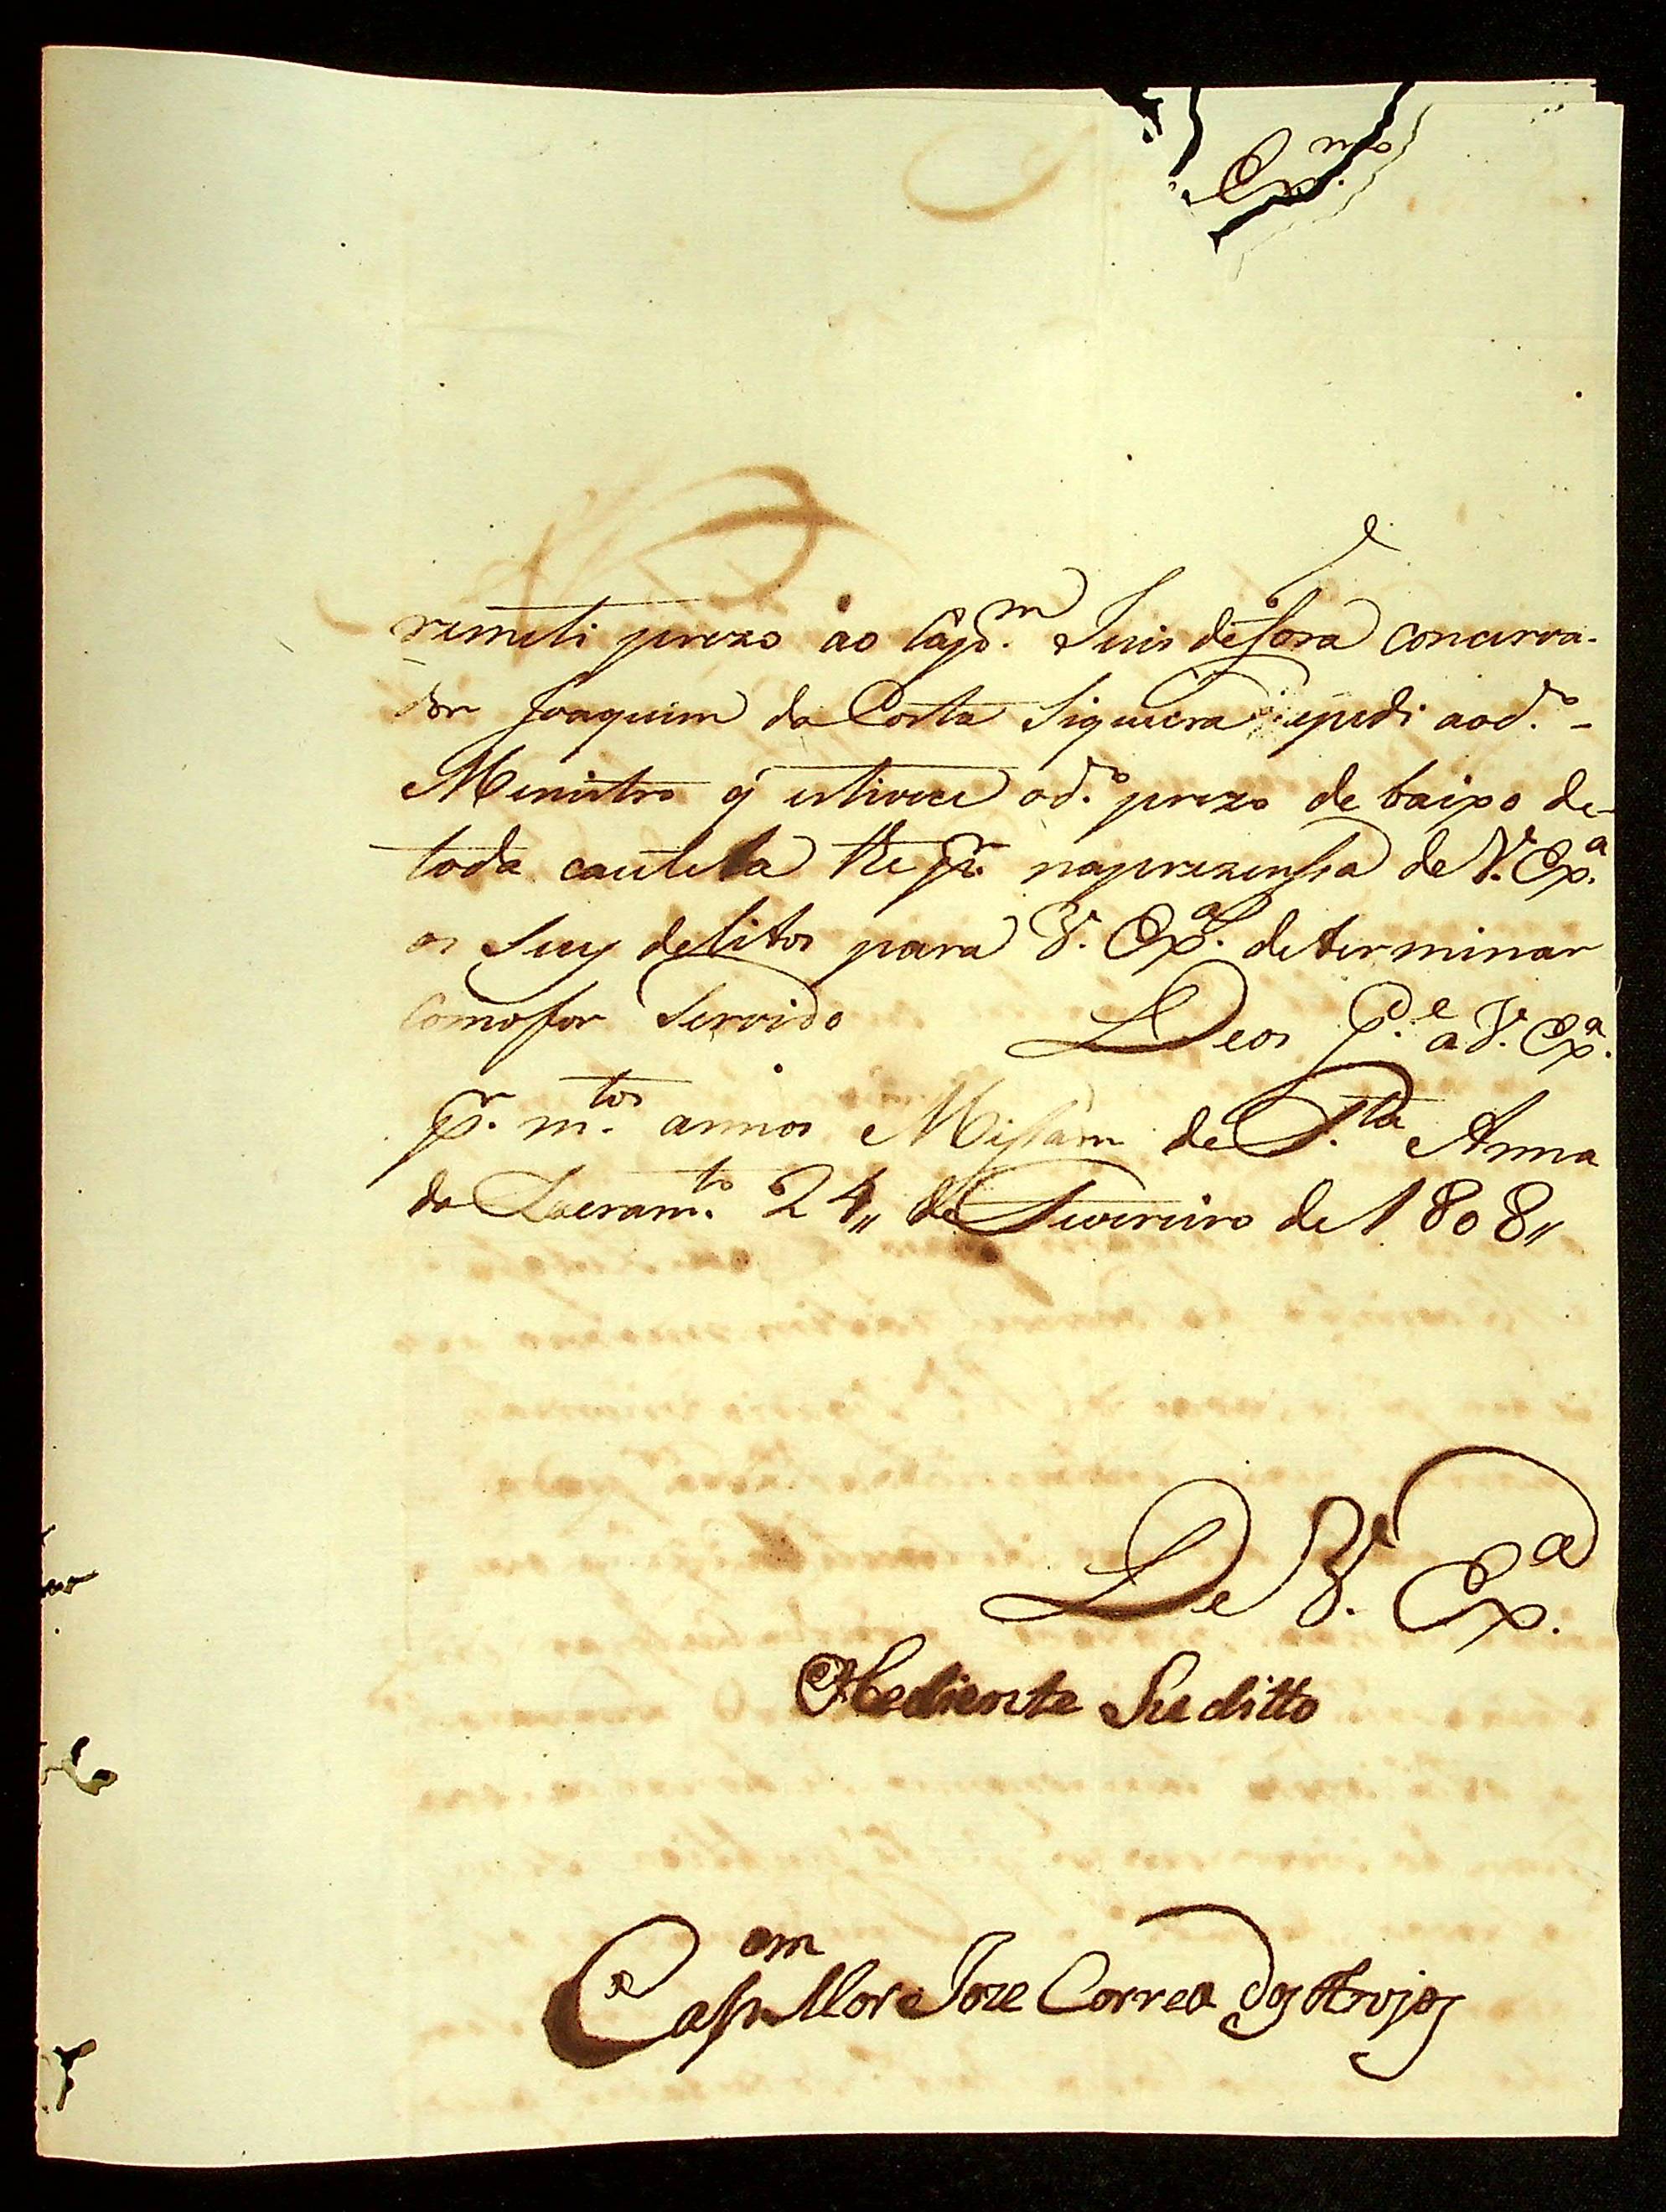 Ex.mo
remeti prezo ao Cap.m Juis de fora concerva-
dor Joaquim da Costa Siqueira epedi aod.o
Menistro q̃ estivece od.o prezo de baixo de
toda cautela the pr. naprezensia de V. Ex.a
os Seuz delitos para V. Ex.a determinar
Comofor Servido Deos g.e a V. Ex.a
pr. m.tos annos Missam de S.ta Anna
do Sacram.to 24,, de Fevereiro de 1808,,
De V. Ex.a
Obediente Suditto
Capam Mor Joze Correa